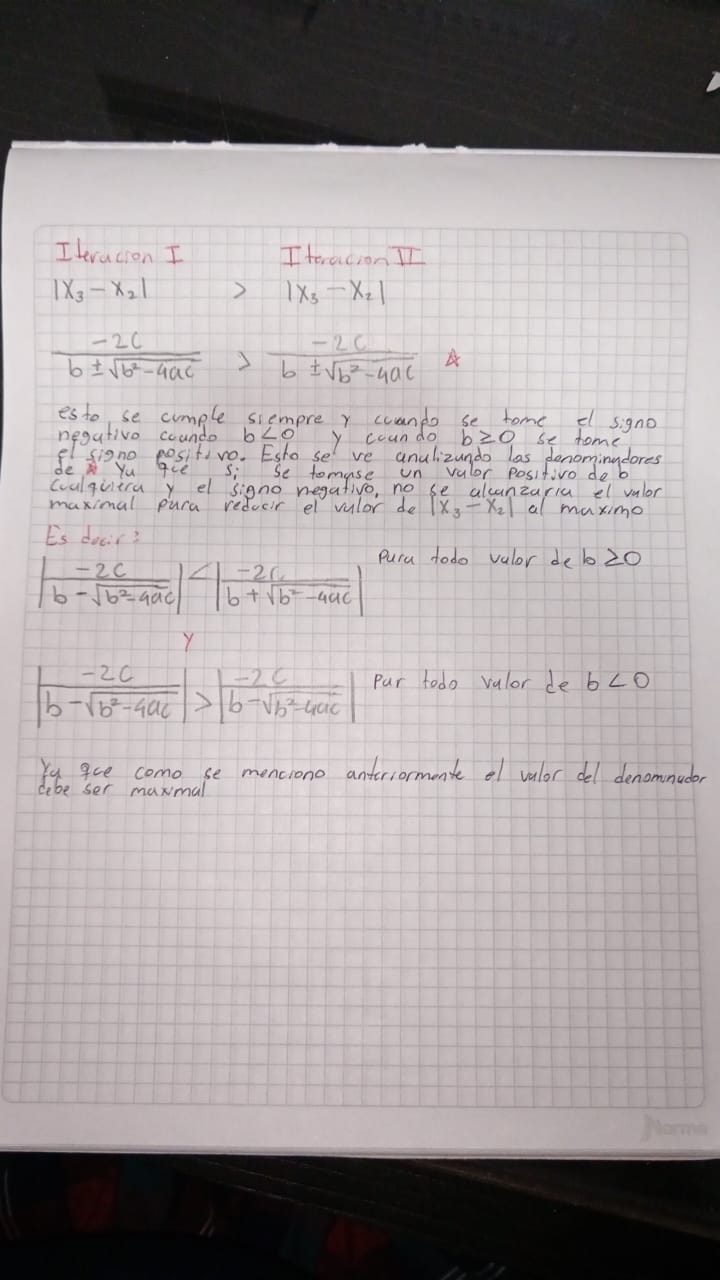 Iteracion I Iteracion II
|X₃ - X₂| > |X₃ - X₂|
-2C / b ± √b² - 4ac > -2C / b ± √b² - 4ac ☆
esto se cumple siempre y cuando se tome el signo
negativo cuando b<0 y cuando b≥0 se tome
el signo positivo. Esto se ve analizando las denominadores
de ☆ Ya que si se tomase un valor positivo de b
cualquiera y el signo negativo, no se alcanzaria el valor
maximal para reducir el valor de |X₃ - X₂| al maximo
Es decir:
|-2C / b - √b² - 4ac| < |-2C / b + √b² - 4ac| Para todo valor de b ≥ 0
y
|-2C / b - √b² - 4ac| > |-2C / b - √b² - 4ac| Par todo valor de b < 0
Ya que como se menciono anteriormente el valor del denominador
debe ser maxmal
Norma